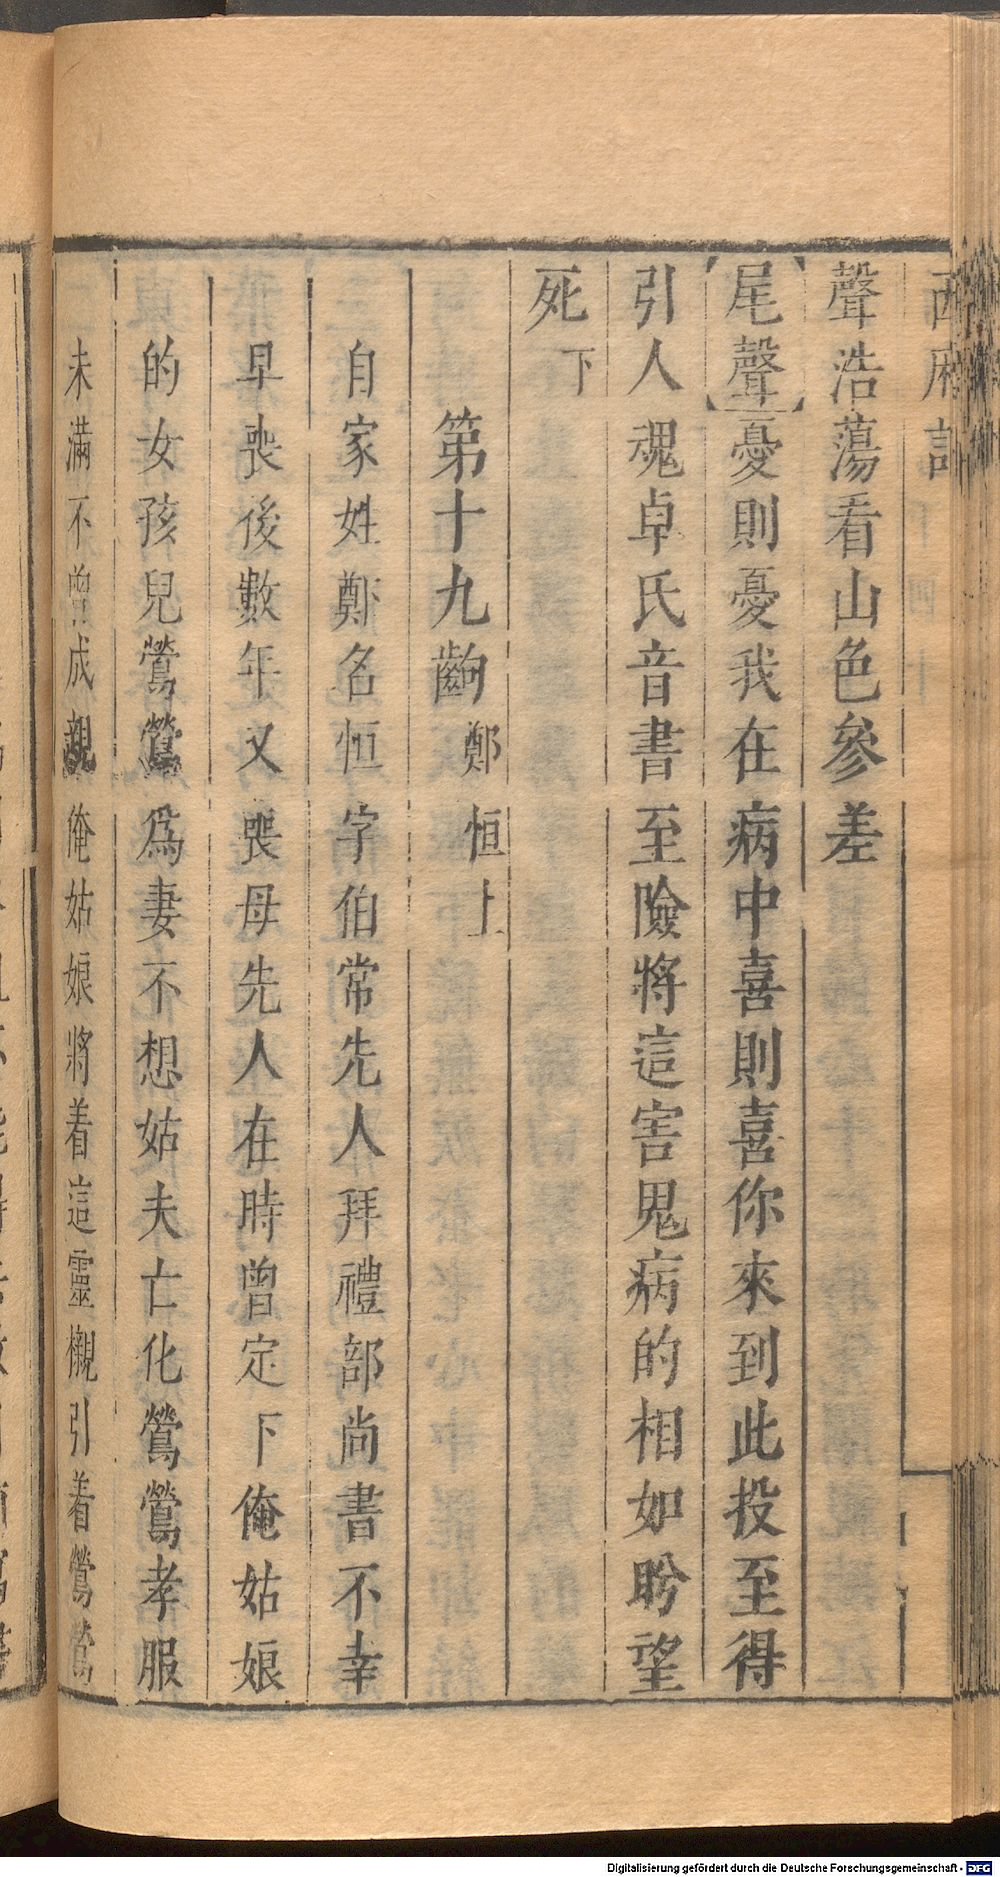 聲浩蕩看山色參差
【尾聲】憂則憂我在病中喜則喜你來到此投至得
引人魂卓氏音書至險將這害鬼病的相如盻望
死下
第十九齣鄭恒上
自家姓鄭名恒字伯常先人拜禮部尚書不幸
早喪後數年又喪母先人在時曾定下俺姑娘
的女孩兒鶯鶯爲妻不想姑夫亡化鶯鶯孝服
未滿不曾成親俺姑娘將着這靈櫬引着鶯鶯
Digitalisierung gefördert durch die Deutsche Forschungsgemeinschaft - DFG